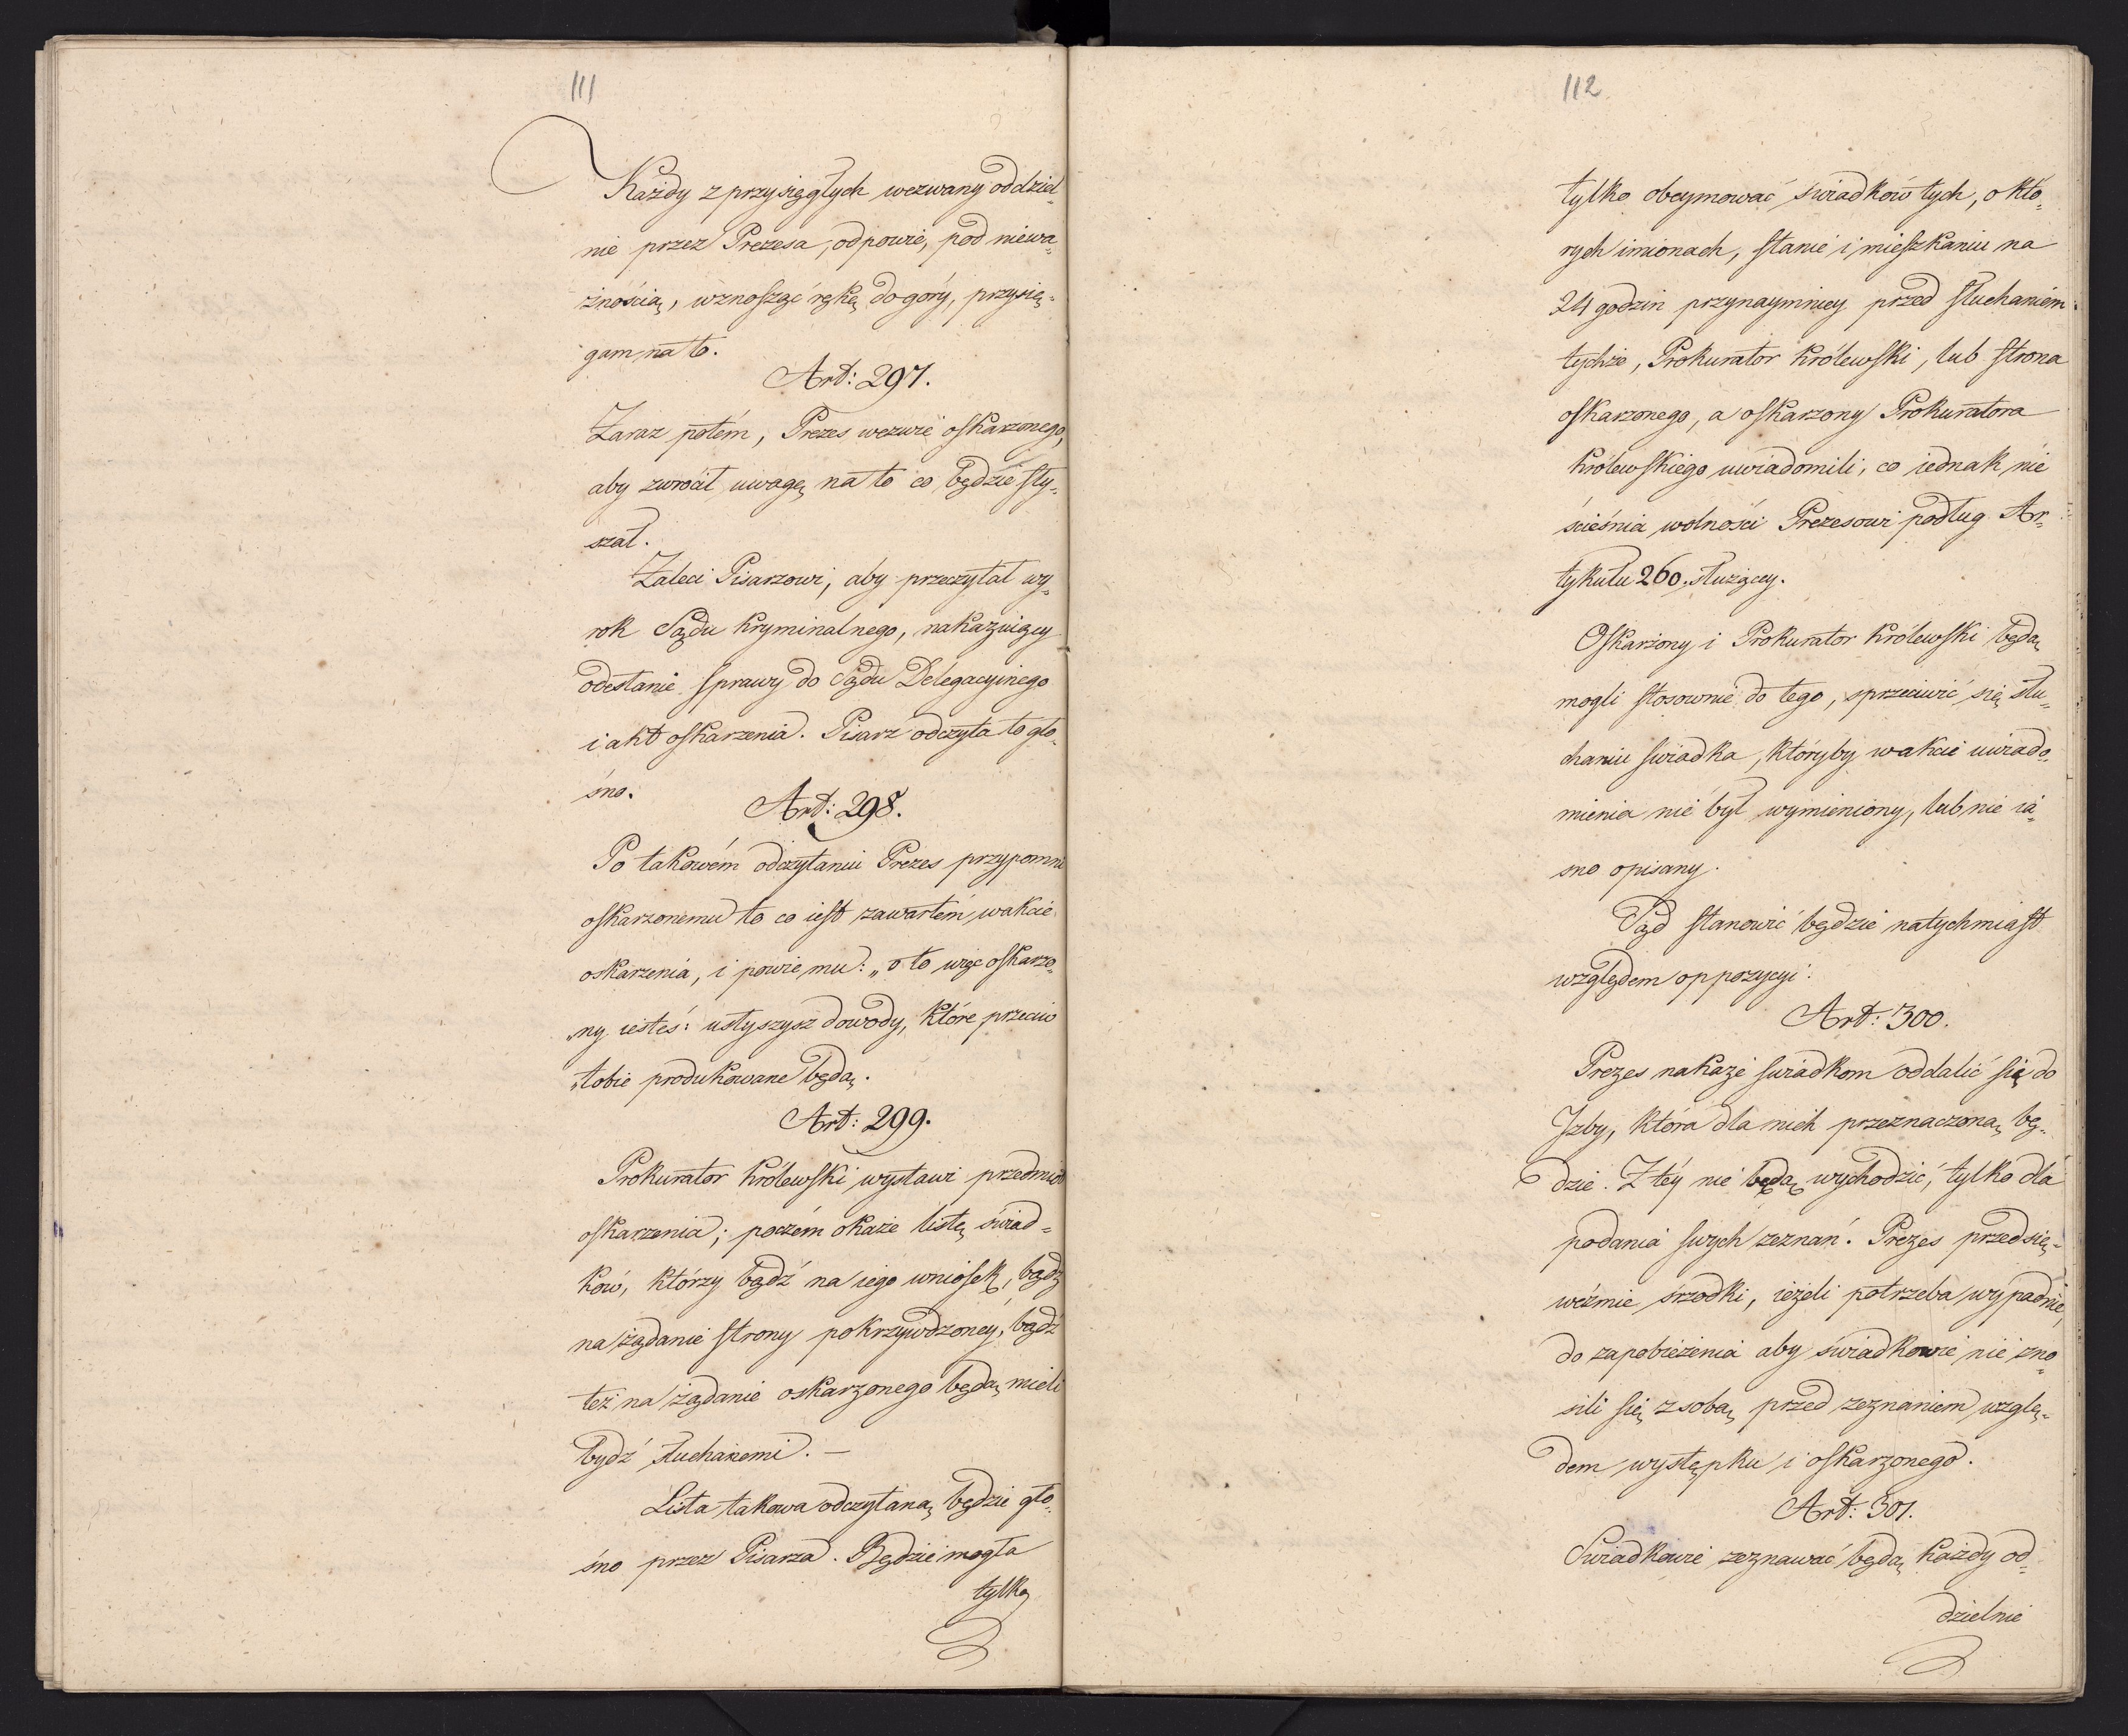 111
Każdy z przysięgłych wezwany oddziel„
nie przez Prezesa, odpowie, pod niewa„
żnością, wznosząc rękę do góry, przysię„
gam na to.
Art: 297.
Zaraz potém, Prezes wezwie oskarzonego,
aby zwrócił uwagę na to co będzie sły„
szał.
Zaleci Pisarzowi, aby przeczytał wy„
rok Sądu kryminalnego, nakazuiący
odesłanie sprawy do Sądu Delegacyinego
i akt oskarzenia. Pisarz odczyta to gło„
śno.
Art: 298.
Po takowém odczytaniu Prezes przypomni
oskarzonemu to co iest zawartém w akcie
oskarzenia, i powie mu: „o to więc oskarzo„
„ny iesteś: usłyszysz dowody, które przeciw
„tobie produkowane będą.
Art: 299.
Prokurator Królewski wystawi przedmiot
oskarzenia; poczém okaże listę świad„
ków, którzy bądź na iego wniosek, bądź
na żądanie strony pokrzywdzoney, bądź
też na żądanie oskarzonego będą mieli
bydź słuchanemi. –
Lista takowa odczytaną będzie gło„
śno przez Pisarza. Będzie mogła
tylko
112
tylko obeymować świadków tych, o któ„
rych imionach, stanie i mieszkaniu na
24 godzin przynaymniey przed słuchaniem
tychże, Prokurator Królewski, lub strona
oskarzonego, a oskarzony Prokuratora
Królewskiego uwiadomili, co iednak nie
ścieśnia wolności Prezesowi podług Ar„
tykułu 260. służącey.
Oskarżony i Prokurator Królewski będą
mogli stosownie do tego, sprzeciwić się słu„
chaniu świadka, któryby w akcie uwiado„
mienia nie był wymieniony, lub nie ia„
sno opisany.
Sąd stanowić będzie natychmiast
względem oppozycyi.
Art: 300.
Prezes nakaże świadkom oddalić się do
Izby, która dla nich przeznaczoną bę„
dzie. Z téy nie będą wychodzić, tylko dla
podania swych zeznań. Prezes przedsię„
weźmie śrzodki, ieżeli potrzeba wypadnie,
do zapobieżenia aby świadkowie nie zno„
sili się z sobą przed zeznaniem wzglę„
dem występku i oskarzonego.
Art: 301.
Swiadkowie zeznawać będą każdy od„
dzielnie